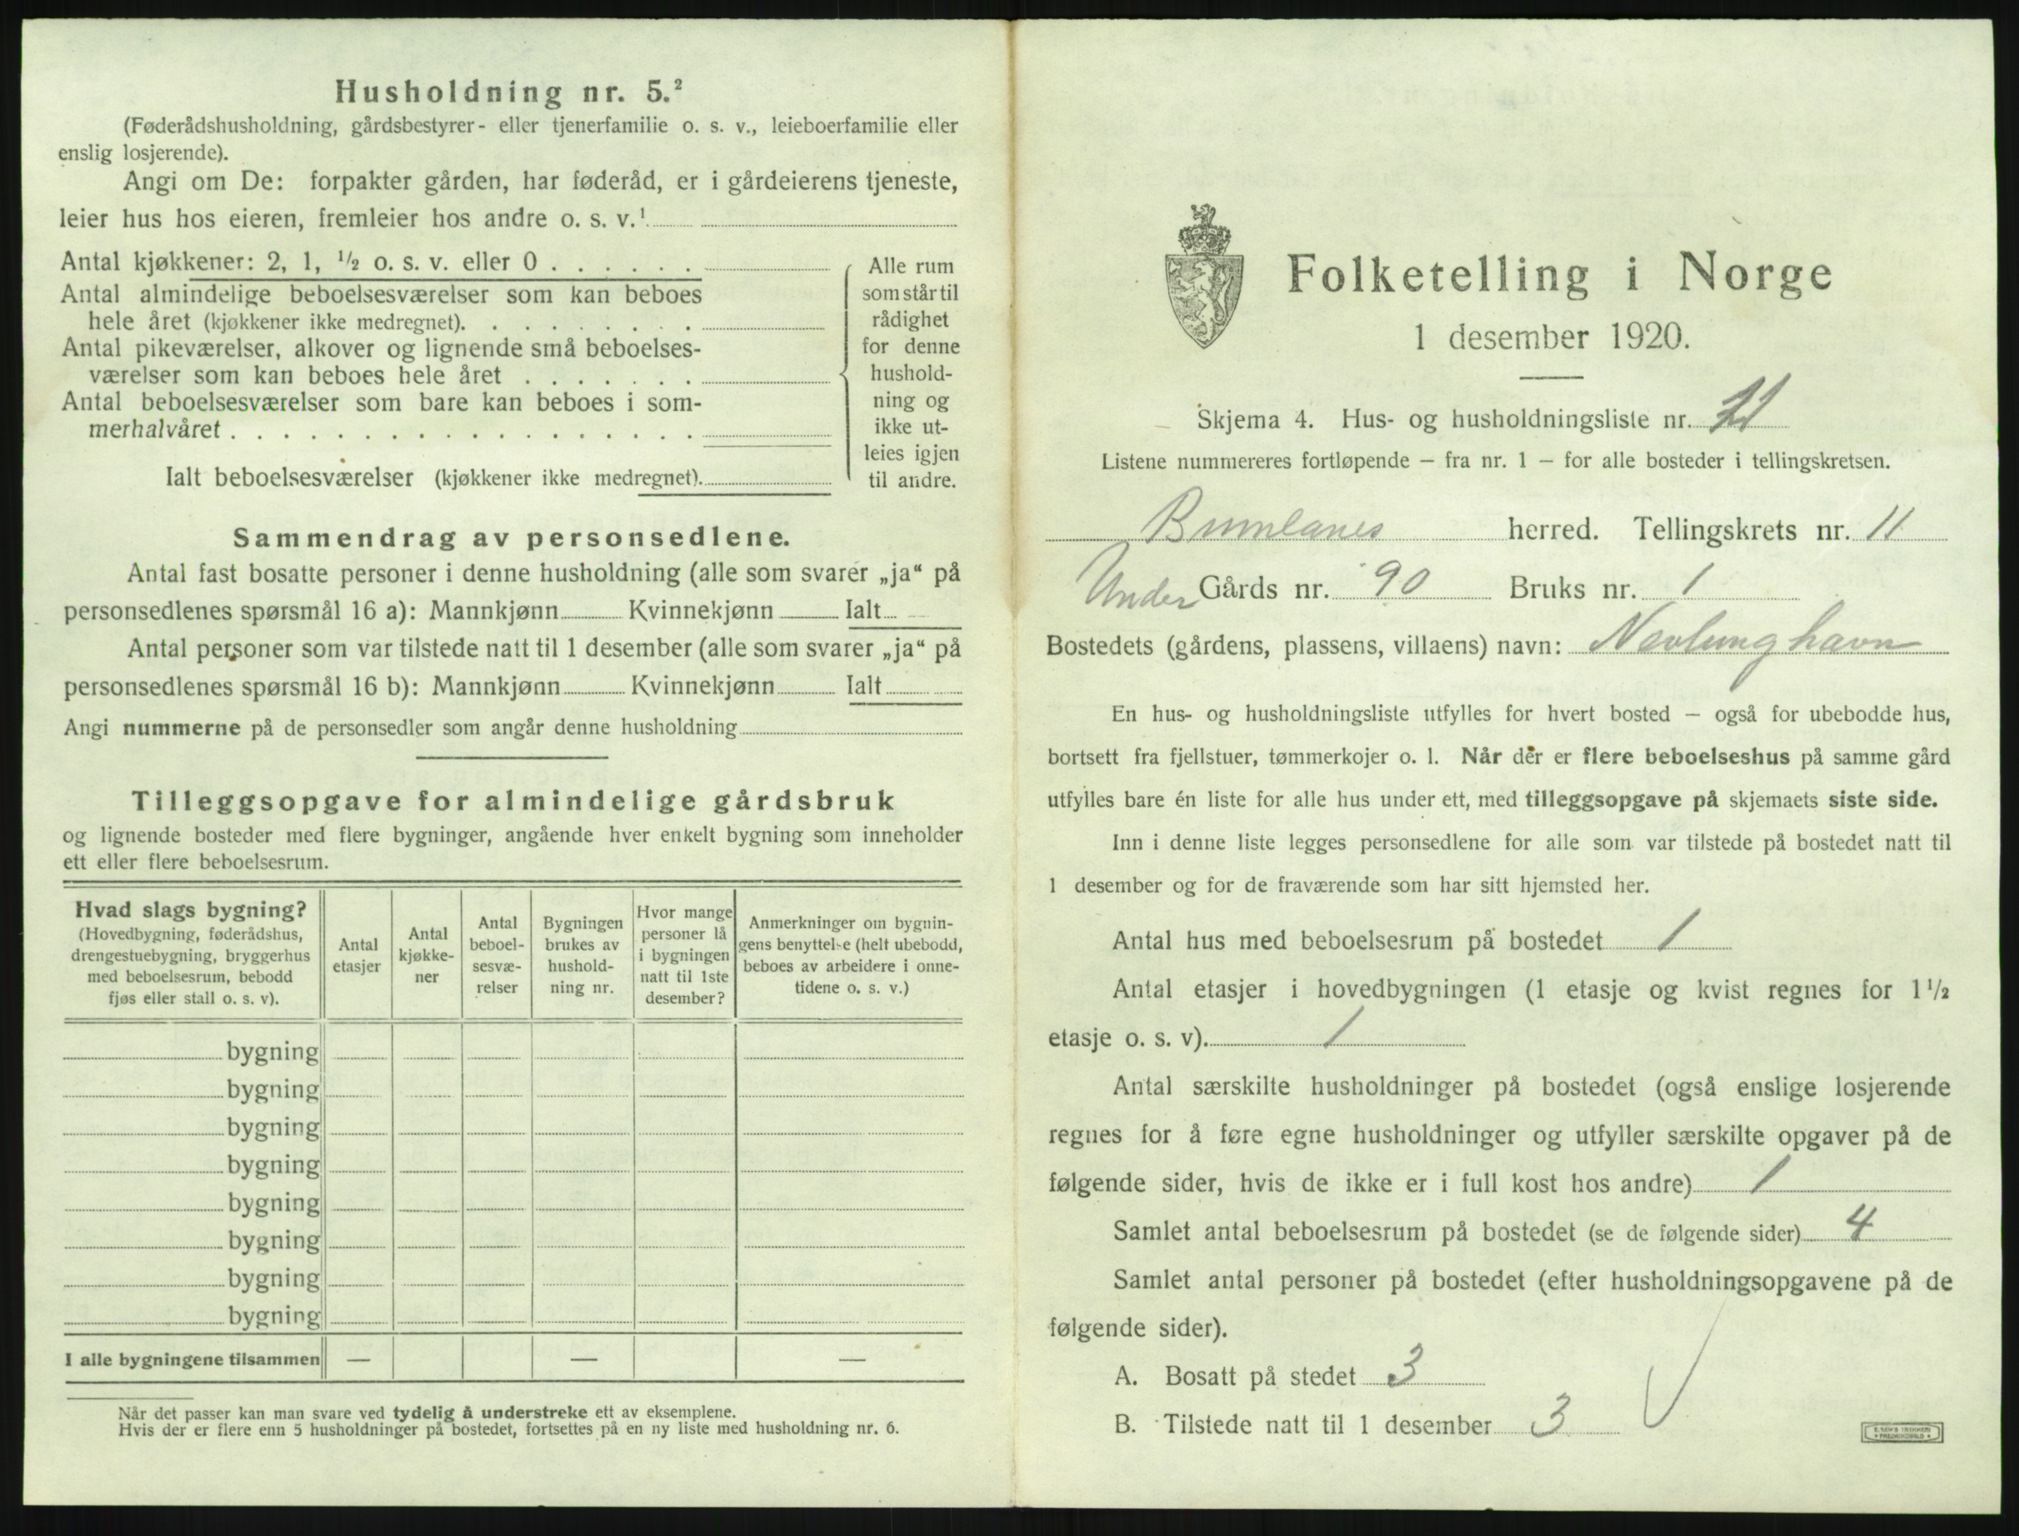 Husholdning nr. 5.²
(Føderådshusholdning, gårdsbestyrer- eller tjenerfamilie o. s. v., leieboerfamilie eller
enslig losjerende).
Angi om De: forpakter gården, har føderåd, er i gårdeierens tjeneste,
leier hus hos eieren, fremleier hos andre o. s. v.¹
Antal kjøkkener: 2, 1, ½ o. s. v. eller 0 . . . . . .
Antal almindelige beboelsesværelser som kan beboes
hele året (kjøkkener ikke medregnet). . . . . . . . .
Antal pikeværelser, alkover og lignende små beboelses-
værelser som kan beboes hele året . . . . . . .
Antal beboelsesværelser som bare kan beboes i som-
merhalvåret . . . . . . . . . . . . . . . . . .
Ialt beboelsesværelser (kjøkkener ikke medregnet).
Alle rum
som står til
rådighet
for denne
hushold-
ning og
ikke ut-
leies igjen
til andre.
Sammendrag av personsedlene.
Antal fast bosatte personer i denne husholdning (alle som svarer „ja“ på
personsedlenes spørsmål 16 a): Mannkjønn Kvinnekjønn Ialt
Antal personer som var tilstede natt til 1 desember (alle som svarer „ja“ på
personsedlenes spørsmål 16 b): Mannkjønn Kvinnekjønn Ialt
Angi nummerne på de personsedler som angår denne husholdning
Tilleggsopgave for almindelige gårdsbruk
og lignende bosteder med flere bygninger, angående hver enkelt bygning som inneholder
ett eller flere beboelsesrum.
Hvad slags bygning?
(Hovedbygning, føderådshus,
drengestuebygning, bryggerhus
med beboelsesrum, bebodd
fjøs eller stall o. s. v).
Antal
etasjer
Antal
kjøkke-
ner
Antal
beboel-
sesvæ-
relser
Bygningen
brukes av
hushold-
ning nr.
Hvor mange
personer lå
i bygningen
natt til 1ste
desember?
Anmerkninger om bygnin-
gens benyttelse (helt ubebodd,
beboes av arbeidere i onne-
tidene o. s. v.)
bygning
bygning
bygning
bygning
bygning
bygning
bygning
bygning
I alle bygningene tilsammen — — —
Når det passer kan man svare ved tydelig å understreke ett av eksemplene.
Hvis der er flere enn 5 husholdninger på bostedet, fortsettes på en ny liste med husholdning nr. 6.
Folketelling i Norge
1 desember 1920.
Skjema 4. Hus- og husholdningsliste nr.
Listene nummereres fortløpende – fra nr. 1 – for alle bosteder i tellingskretsen.
Brunlanes herred. Tellingskrets nr. 11
Under Gårds nr. 90 Bruks nr. 1
Bostedets (gårdens, plassens, villaens) navn: Nevlunghavn
En hus- og husholdningsliste utfylles for hvert bosted – også for ubebodde hus,
bortsett fra fjellstuer, tømmerkojer o. l. Når der er flere beboelseshus på samme gård
utfylles bare én liste for alle hus under ett, med tilleggsopgave på skjemaets siste side.
Inn i denne liste legges personsedlene for alle som var tilstede på bostedet natt til
1 desember og for de fraværende som har sitt hjemsted her.
Antal hus med beboelsesrum på bostedet 1
Antal etasjer i hovedbygningen (1 etasje og kvist regnes for 1½
etasje o. s. v). 1
Antal særskilte husholdninger på bostedet (også enslige losjerende
regnes for å føre egne husholdninger og utfyller særskilte opgaver på de
følgende sider, hvis de ikke er i full kost hos andre) 1
Samlet antal beboelsesrum på bostedet (se de følgende sider) 4
Samlet antal personer på bostedet (efter husholdningsopgavene på de
følgende sider).
A. Bosatt på stedet 3
B. Tilstede natt til 1 desember 3